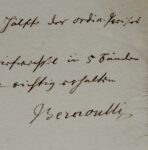 Hälfte der ordin. Preises
in 5 Bänden
richtig erhalten
Bernoulli